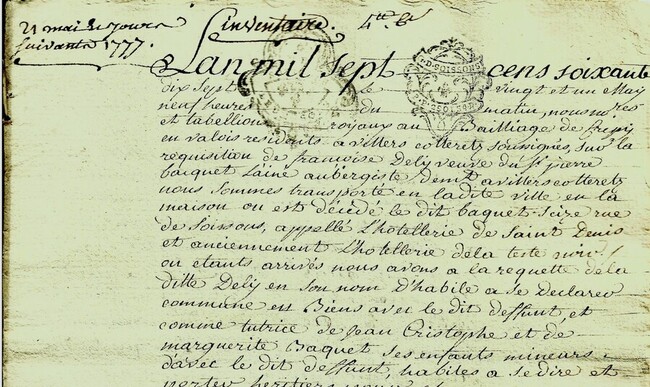 21 mai & jours
suivants 1777.
L'inventaire. 4tt 6s
G. D. SOISSONS
L'an mil sept cens soixante
dix sept le vingt et un May
neuf heures du matin, nous nores
et tabellions royaux au Bailliage de Crepy
en valois residents a villers cotterets soussignés, sur la
requisition de francoise Dely veuve du St pierre
baquet L'ainé aubergiste demt a villers cotteretz
nous sommes transporté en ladite ville en la
maison ou est décédé le dit baquet size rue
de Soissons, appellé L'hotellerie de Saint Denis
et anciennement L'hotellerie dela teste noire
ou etants arrivés nous avons a la requette dela
ditte Dely en son nom D'habile a se Declarer
commune en Biens avec le dit deffunt, et
comme tutrice de Jean Cristophe et de
marguerite Baquet ses enfants mineurs
d'avec le dit deffunt, habiles a se dire et
porter heritiers